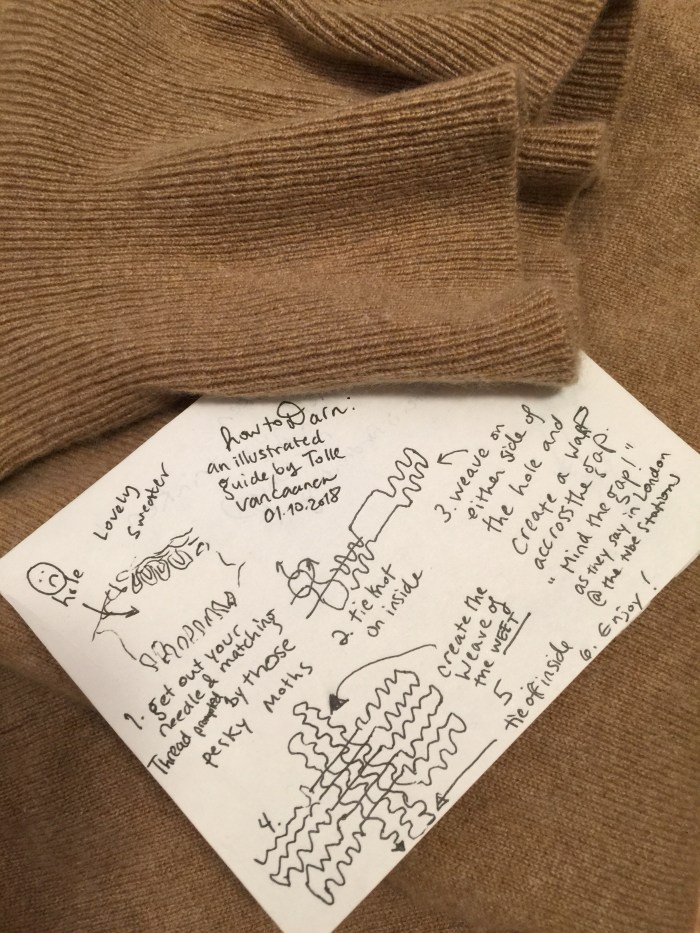 how to Darn:
an illustrated
guide by Tolle
vancaanen
01.10.2018
Lovely
sweater
hole
1. get out your
needle & matching
Thread
by those
pesky moths
2. tie knot
on inside
3. weave on
either side of
the hole and
create a warp
accross the gap.
"Mind the gap!"
as they say in London
@ the tube stations
4.
create the
weave of
the WEFT
5
tie off inside
6. Enjoy!